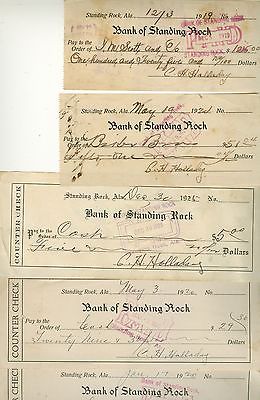 Standing Rock, Ala. 12/3 1919 No.
Pay to the
Order of J. M. Scott and Co $125.00
One hundred and Twenty five and no/100 Dollars
C. H. Holladay
BANK OF STANDING ROCK
May 19 1920 No.
Bank of Standing Rock
Pay to the
Order of Bros $51.00
Fifty One Dollars
C. H. Holladay
COUNTER CHECK
Standing Rock, Ala. Dec 30 192 No.
Bank of Standing Rock
Pay to the
order of Cash $5.00
Five Dollars
C. H. Holladay
COUNTER CHECK
May 3 1920 No.
Bank of Standing Rock
Pay to the
Order of Cash $29.30
Twenty Nine & Dollars
C. H. Holladay
CHECK
Jan 17 1920 No.
BANK OF STANDING ROCK
Bank of Standing Rock